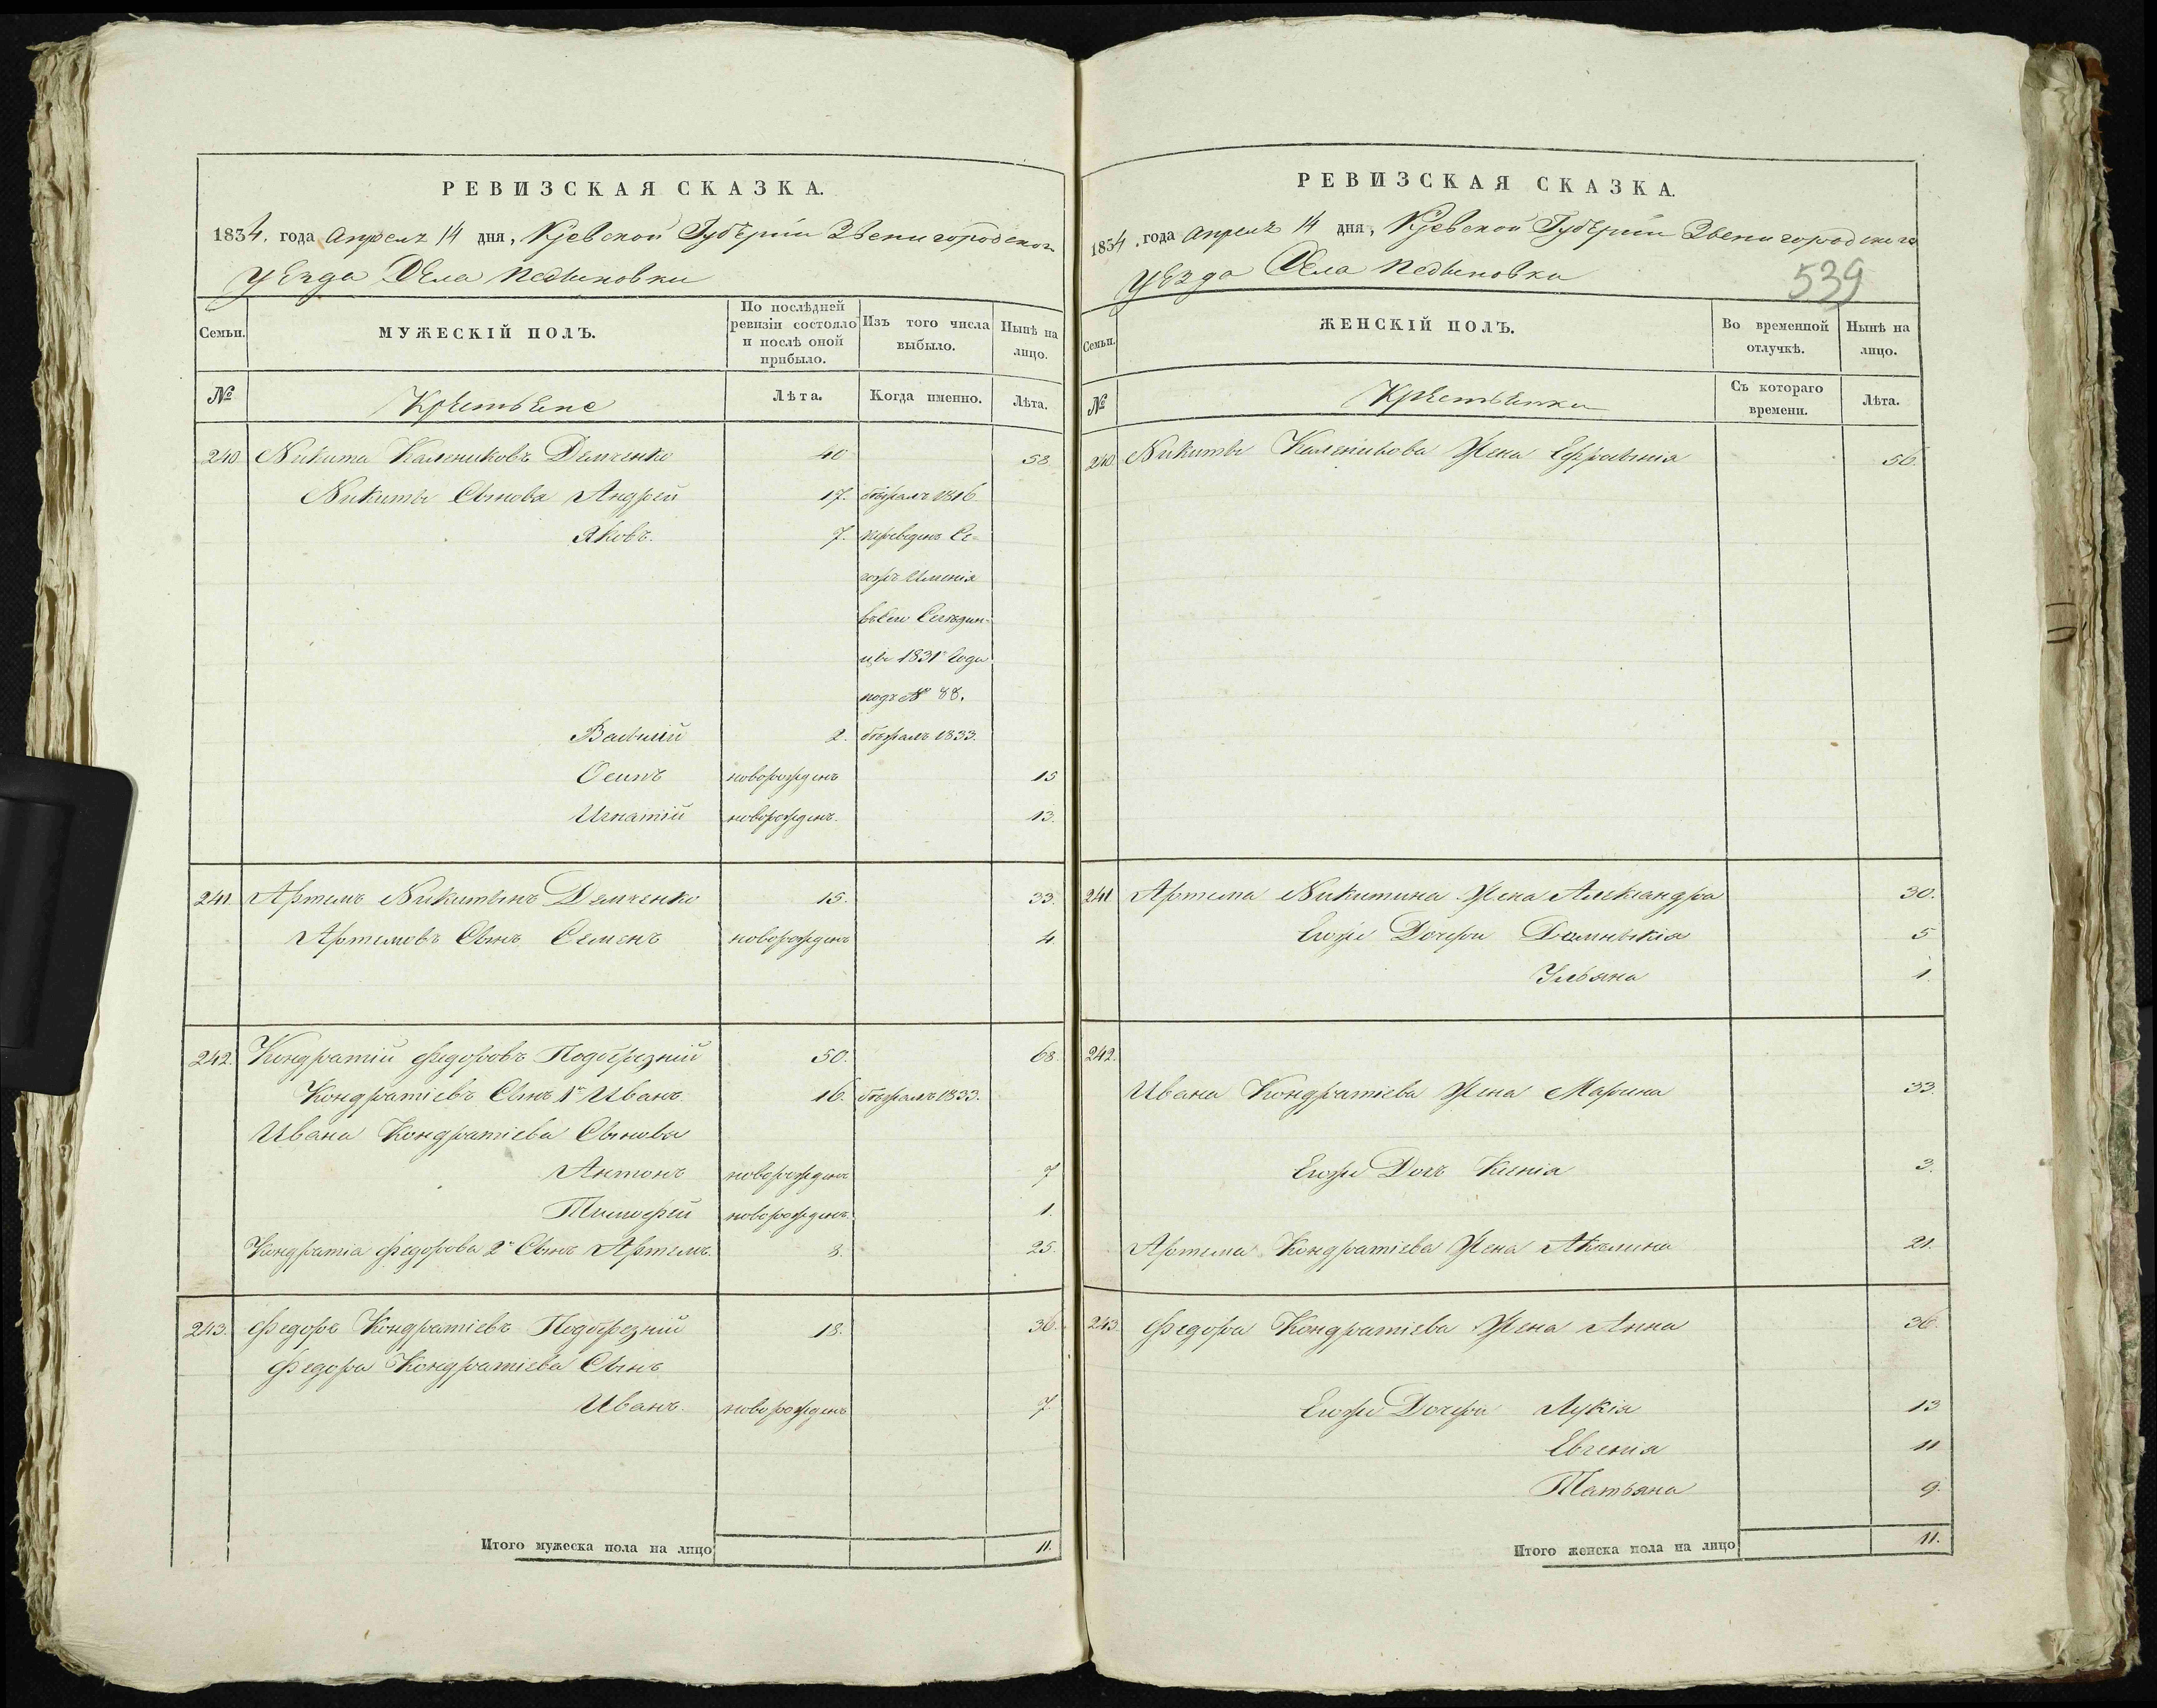 РЕВИЗСКАЯ СКАЗКА.
1834. года Апреля 14 дня, Кіевской Губерніи Звенигородского
уезда Села
Семьи.
МУЖЕСКІЙ ПОЛЪ.
По послѣдней ревизіи состояло и послѣ оной прибыло.
Изъ того числа выбыло.
Нынѣ на лицо.
№
Крестьяне
Лѣта.
Когда именно.
Лѣта.
240 Никита Калениковъ Демченко 40 58
Никиты Сынова Андрей 17. 1816
Яковъ. 7. переведенъ Се-
гожъ Именія
въ Село
цы 1831го Года
подъ № 88.
Василий 2. 1833.
Осипъ новорожденъ 15
Игнатій новорожденъ. 13.
241. Артемъ Никитынъ Демченко 15. 33.
Артемовъ Сынъ Семенъ новорожденъ 4.
242. Кондратій Федоровъ Подобрезній 50. 68.
Кондратіевъ Сынъ 1й Иванъ 16. 1833.
Ивана Кондратіева Сынова
Антонъ новорожденъ 7
Тимофей новорожденъ. 1.
Кондратіа Федорова 2й Сынъ Артемъ. 8. 25.
243. Федоръ Кондратіевъ Подобрезній 18. 36.
Федора Кондратіева Сынъ
Иванъ. новорожденъ 7.
Итого мужеска пола на лицо 11.
РЕВИЗСКАЯ СКАЗКА.
1834. года Апреля 14 дня, Кіевской Губерніи Звенигородского
уезда Села
539
Семьи.
ЖЕНСКІЙ ПОЛЪ.
Во временной отлучкѣ.
Нынѣ на лицо.
№
Крестьянки
Съ котораго времени.
Лѣта.
240 Никиты Каленикова Жена 56.
241 Артема Никитина Жена Александра 30.
Егожъ Дочери Домникія 5
Ульяна 1.
242.
Ивана Кондратіева Жена Марина 33.
Егожъ Дочъ Ксенія 3.
Артема Кондратіева Жена Акилина 21.
243 Федора Кондратіева Жена Анна 36.
Егожъ Дочери Лукія 13
Евгенія 11
Татьяна 9.
Итого женска пола на лицо 11.